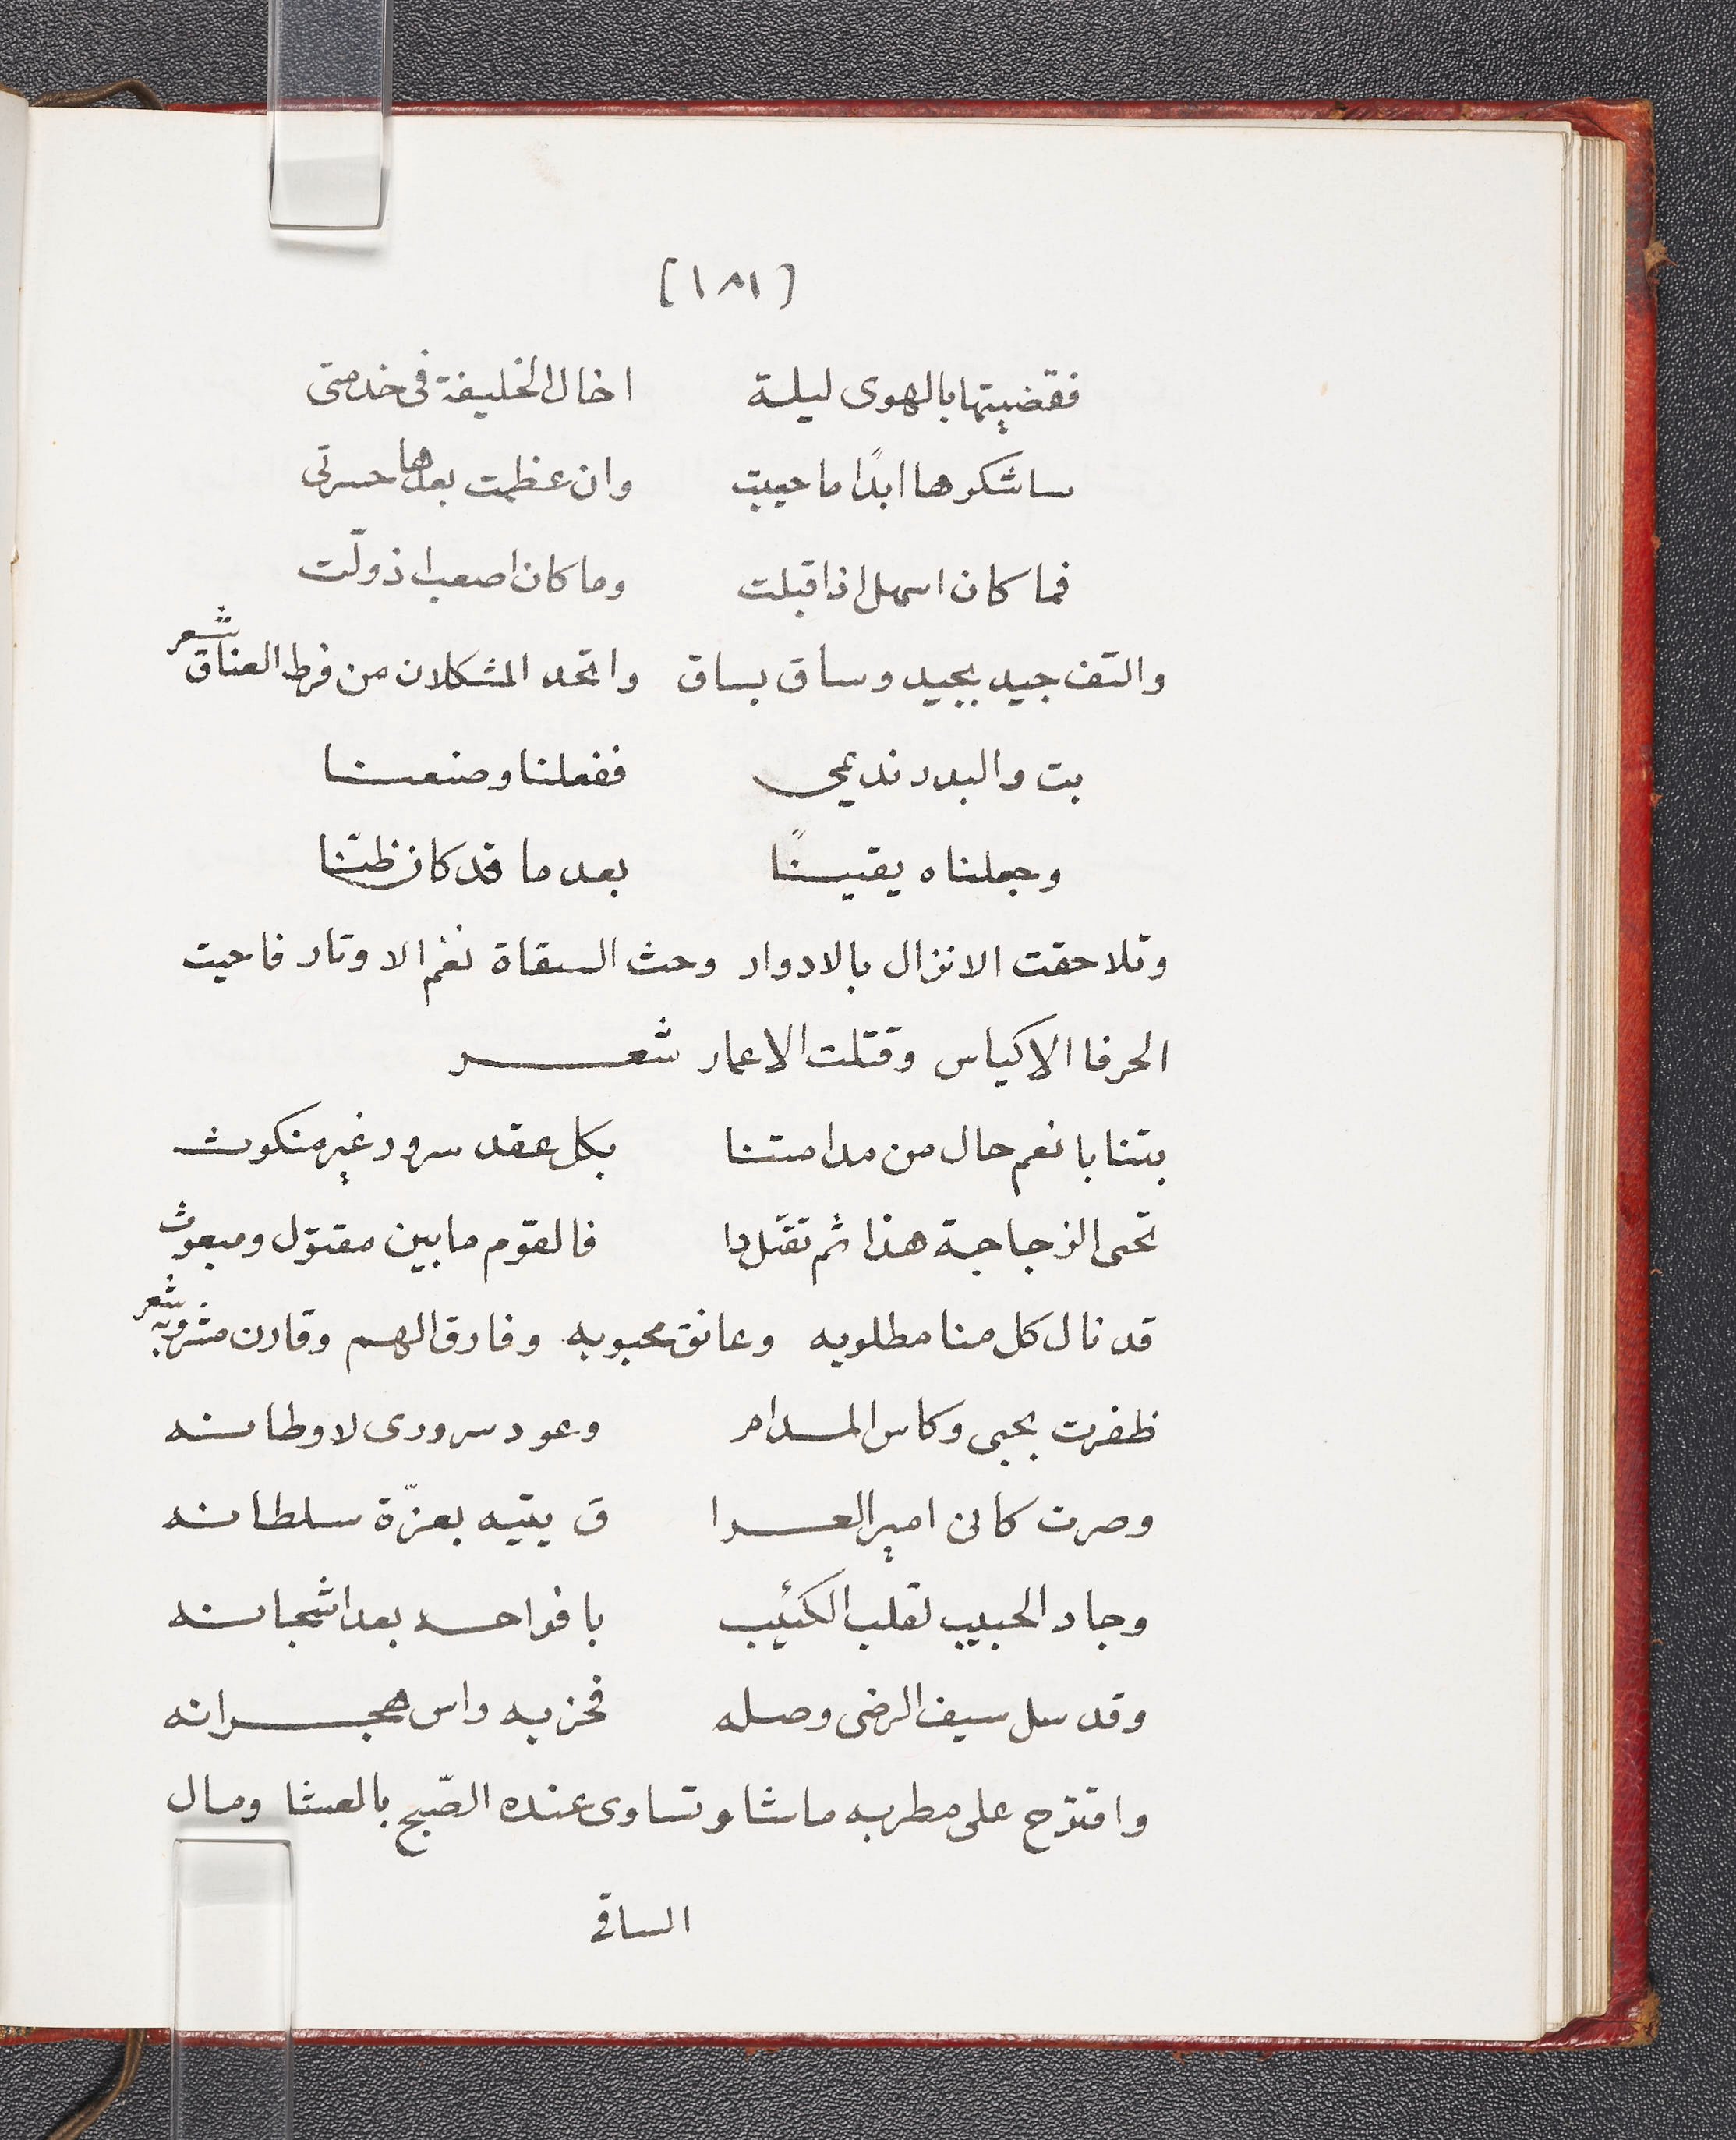 [١٨١]
فقضيتها بالهوى ليلة اخال الخليفة فى خدمتى
ساشكرها ابدًا ما حييت وان عظمت بعدها حسرتى
فما كان اسهل اذ اقبلت وما كان اصعب اذ ولّت
والتف جيد بجيد وساق بساق واتحد المشكلان من فرط العناق شعر
بت والبدر نديمي ففعلنا وصنعنا
وجعلناه يقينًا بعد ما قد كان ظنّنا
وتلاحقت الانزال بالادوار وحث السقاة نغم الاوتار فاحيت
الحرفا الاكياس وقتلت الاعمار شعر
بتنا بانعم حال من مدامتنا بكل عقد سرور غير منكوث
تحى الزجاجة هذا ثم تقتل دا فالقوم مابين مقتول ومبعوث
قد نال كل منا مطلوبه وعانق محبوبه وفارق الهم وقارن مشروبه شعر
ظفرت بحبى وكاس المدام وعود سرورى لاوطانه
وصرت كانى امير العرا ق يتيه بعزّة سلطانه
وجاد الحبيب لقلب الكئيب بافواحه بعد اشجانه
وقد سل سيف الرضى وصله فحز به راس هجرانه
واقترح على مطربه ماشا وتساوى عنده الصّبح بالعشا ومال
الساقى